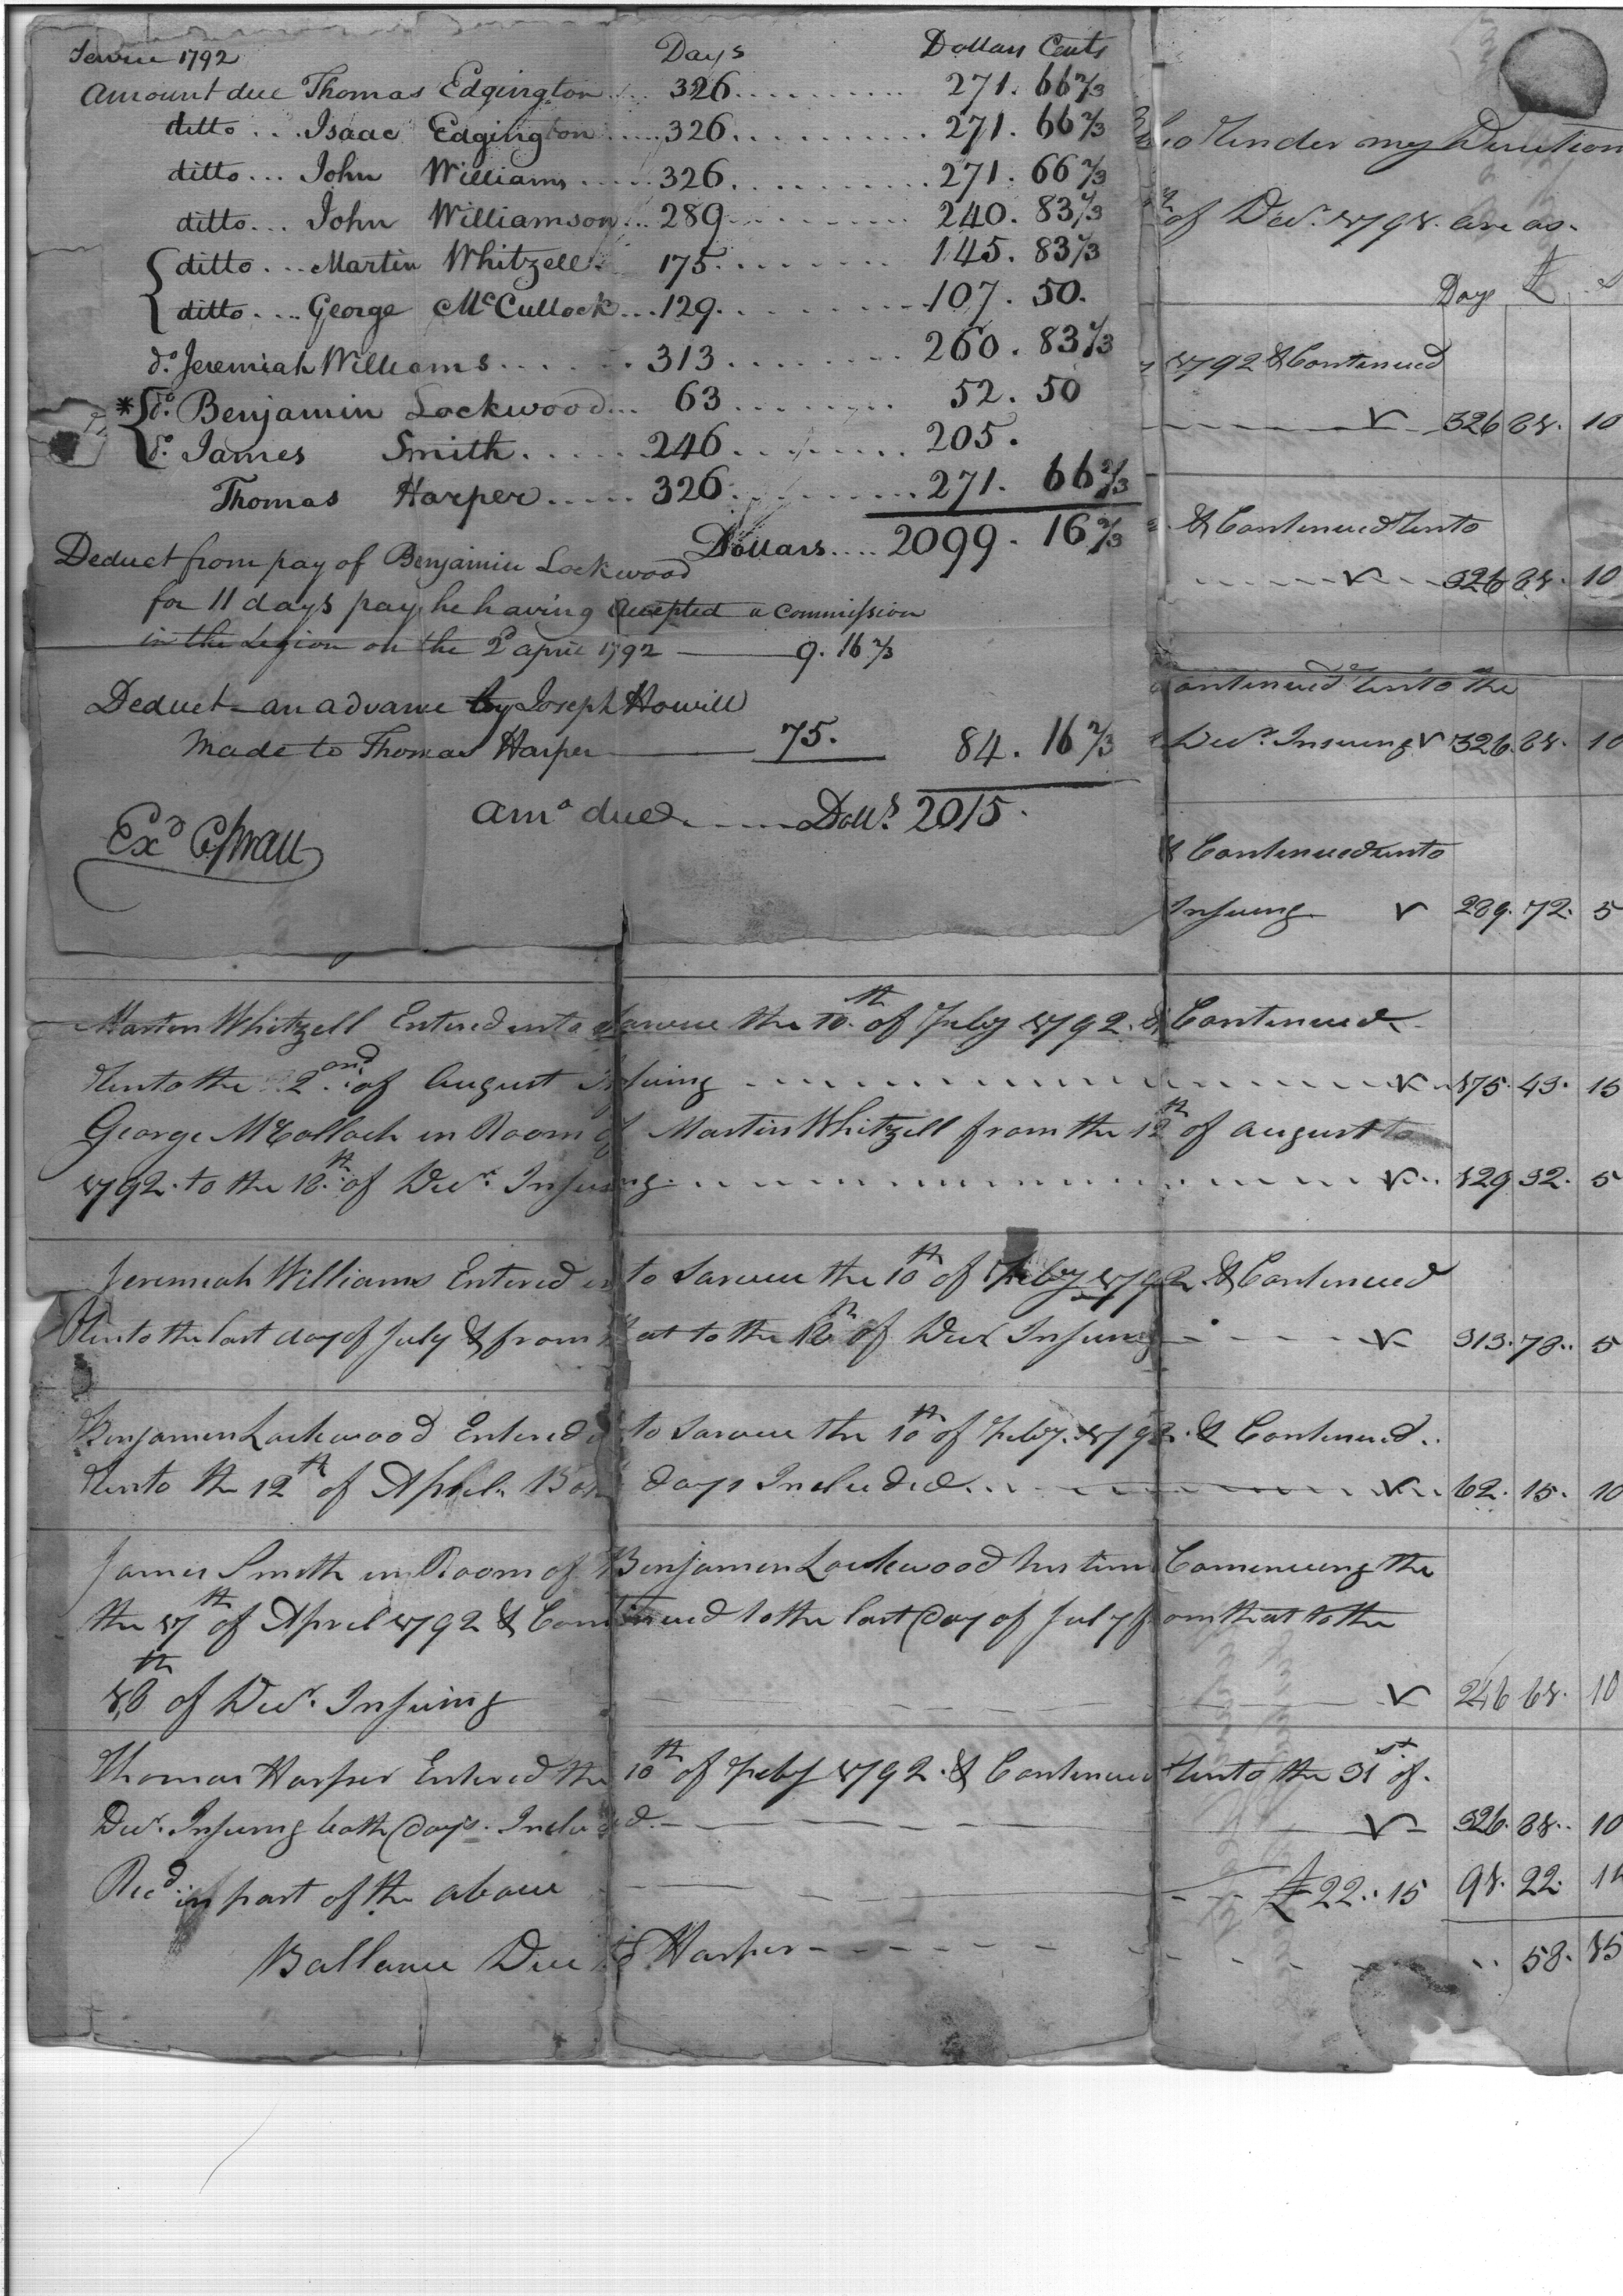 Service 1792 Days Dollars Cents
Amount due Thomas Edgington... 326.......... 271. 66 2/3
ditto... Isaac Edgington.....326........... 271. 66 2/3
ditto... John Williams.....326........... 271. 66 2/3
ditto... John Williamson...289.......... 240. 83 1/3
ditto... Martin Whitzell. 175.......... 145. 83 1/3
ditto.... George McCullock...129.......... 107. 50.
do. Jeremiah Williams...... 313........ 260. 83 1/3
* do. Benjamin Lockwood... 63........ 52. 50
do. James Smith..... 246........ 205.
Thomas Harper..... 326.......... 271. 66 2/3
Dollars.... 2099. 16 2/3
Deduct from pay of Benjamin Lockwood
for 11 days pay, he having accepted a commission
in the Legion on the 2d april 1792 9. 16 2/3
Deduct an advance by Joseph Howell
made to Thomas Harper 75. 84. 16 2/3
amo due Dolls. 2015.
Exd
Under my Direction
of Decr. 179 are as.
Days £
1792 & Continued
326 81. 10
& Continued Unto
326 81. 10
Continued Unto the
Decr. Insuing 326. 81. 10
& Continued unto
Insuing 289. 72. 5
Marten Whitzell Entered into Sarvice the 10th of Feby 1792. & Continued
Unto the 2ond of August Insuing 175. 43. 15
George McColloch in Room of Martin Whitzell from the 12th of august
1792. to the 18th of Decr. Insuing 129 32. 5
Jeremiah Williams Entered into Sarvice the 10th of Feby 1792 & Continued
Unto the last day of July & from that to the 18th of Decr Insuing 313. 78.. 5
Benjamen Lockwood Entered into Sarvice the 10th of Feby. 1792. & Continued..
Unto the 12th of Aprill. Both days Included 62. 15. 10
James Smith in Room of Benjamen Lockwood his time Comencing the
the 17th of April 1792 & Continued to the last Day of July from that to the
18th of Decr. Insuing 246 61. 10
Thomas Harper Entered the 10th of Feby 1792. & Continued Unto the 31st of.
Decr. Insuing both Days. Included. 326. 81.. 10
Recd in part of the above £22..15 91. 22.
Ballance Due to Harper 58. 15